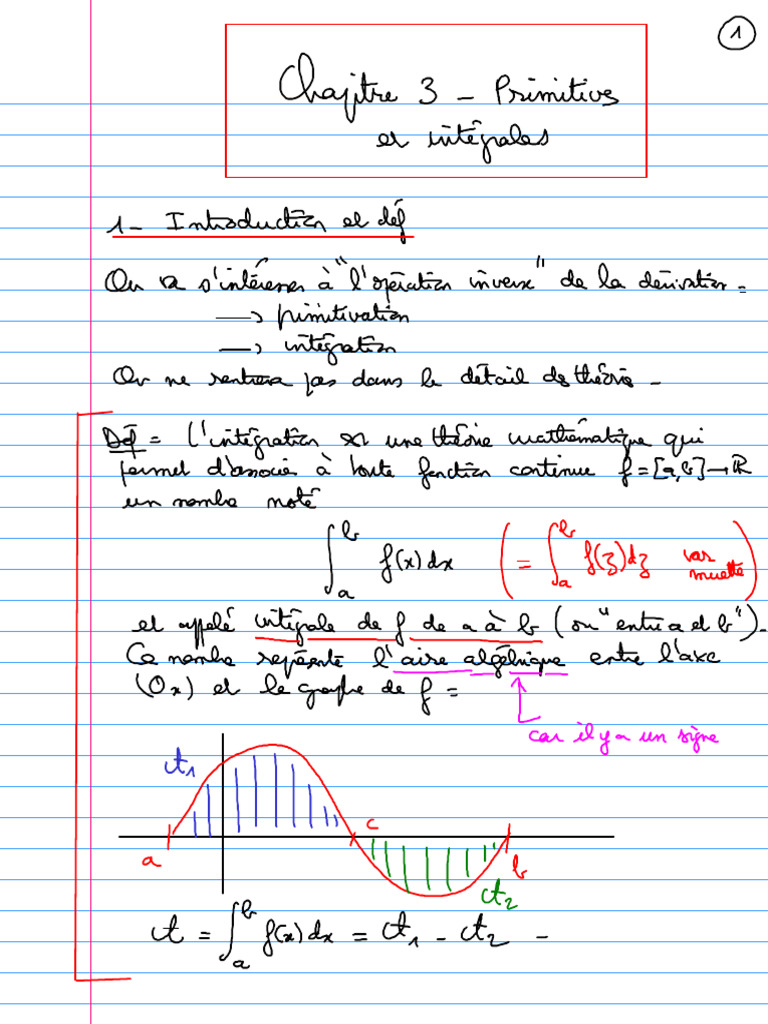 1
Chapitre 3 - Primitives
et intégrales
1- Introduction et déf
On va s'intéresser à "l'opération inverse" de la dérivation :
→ primitivation
→ intégration
On ne rentrera pas dans le détail des théories -
Déf : L'intégration est une théorie mathématique qui
permet d'associer à toute fonction continue f : [a,b] → ℝ
un nombre noté
∫_a^b f(x) dx ( = ∫_a^b f(z) dz var muette )
et appelé intégrale de f de a à b (ou "entre a et b").
Ce nombre représente l'aire algébrique entre l'axe
(Ox) et le graphe de f :
car il y a un signe
A₁
c
a
b
A₂
A = ∫_a^b f(x) dx = A₁ - A₂ -